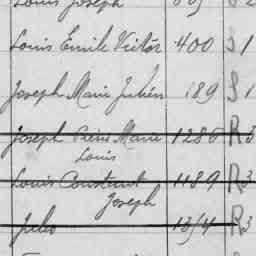 Louis Joseph
Louis Emile Victor 400 S 1
Joseph Marie Julien 189 S 1
Joseph Pierre Marie 1280 R 3
Louis
Louis Constant 1189 R 3
Joseph
Jules R 3